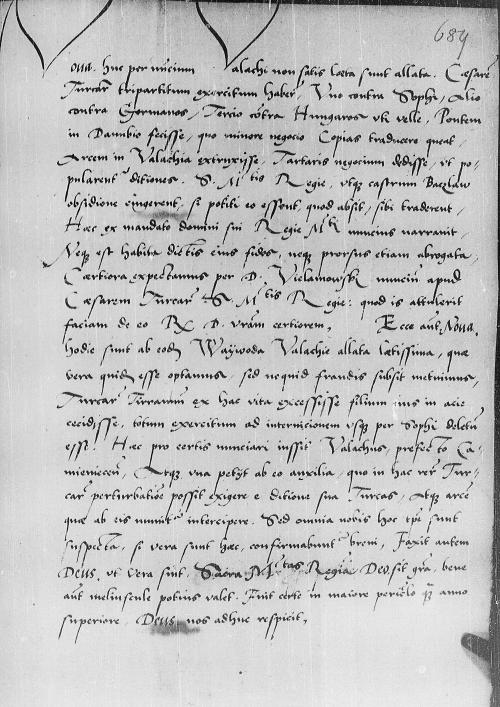 684
oua. huc per nuncium alachi non satis laeta sunt allata. Caesarē
Turcar tripartitum exercitum habere, Vno contra Sophi, Alio
contra Germanos, Tercio cōtra Hungaros vti velle, Pontem
in Danubio fecisse, quo minore negocio Copias traducere queat,
Arcem in Valachia extruxisse, Tartaris negocium dedisse, vt po-
pularent ditiones. S. M tis Regie, vtq castrum Baczlaw
obsidione cingerent, si potiti eo essent, quod absit, sibi traderent,
Haec ex mandato domini sui Regie M ti nuncius narrauit,
Neq est habita dictis eius fides, neq prorsus etiam abrogata,
Certiora expectamus per D. Vielamowsk nunciū apud
Caesarem Turcar S. M tis Regie: quod is attulerit
faciam de eo R. D. vram certiorem, Ecce aūt Noua.
hodie sunt ab eodē Waywoda Valachie allata laetissima, quae
vera quidē esse optamus, sed nequid fraudis subsit metuimus,
Turcar Tirannū ex hac vita excessisse filium eius in acie
cecidisse, totum exercitum ad internicionem vsq per Sophi deletū
esse. Haec pro certis nunciari iussit Valachus, prefecto Ca-
mienecen, Atq vna petyt ab eo auxilia, quo in hac rer Tur-
car perturbatiōe possit exigere e ditione sua Turcas, Atq arce
quae ab eis munit intercipere. Sed omnia nobis hoc tpe sunt
suspecta, si vera sunt haec, confirmabunt breui, Faxit autem
Deus, vt vera sint. Sacra M tas Regia Deo sit gra, bene
aūt meliuscule potius valet. Fuit certe in maiore periclo q anno
superiore, Deus nos adhuc respicit,